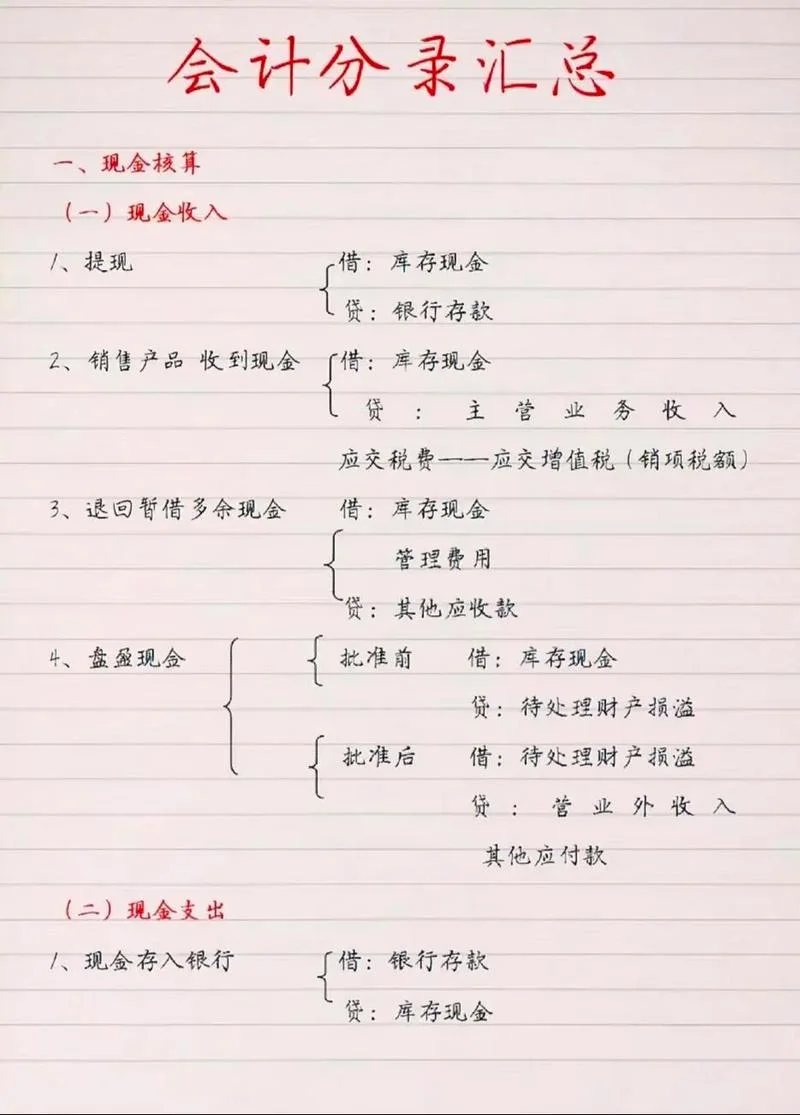 会计分录汇总
一、现金核算
（一）现金收入
1、提现 借：库存现金
贷：银行存款
2、销售产品 收到现金 借：库存现金
贷：主营业务收入
应交税费——应交增值税（销项税额）
3、退回暂借多余现金 借：库存现金
管理费用
贷：其他应收款
4、盘盈现金 批准前 借：库存现金
贷：待处理财产损溢
批准后 借：待处理财产损溢
贷：营业外收入
其他应付款
（二）现金支出
1、现金存入银行 借：银行存款
贷：库存现金